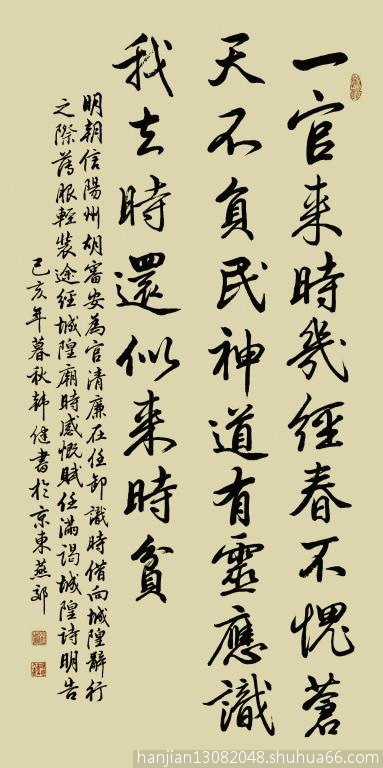 一官来時幾經春不愧蒼
天不負民神道有靈應識
我去時還似来時貧
明朝信陽州胡審安為官清廉在任卸識時借向城隍辭行
之際舊服輕装途經城隍廟時感慨賦任滿謁城隍詩明告
己亥年暮秋韩健書於京東燕郊
hanjian13082048.shuhua66.com